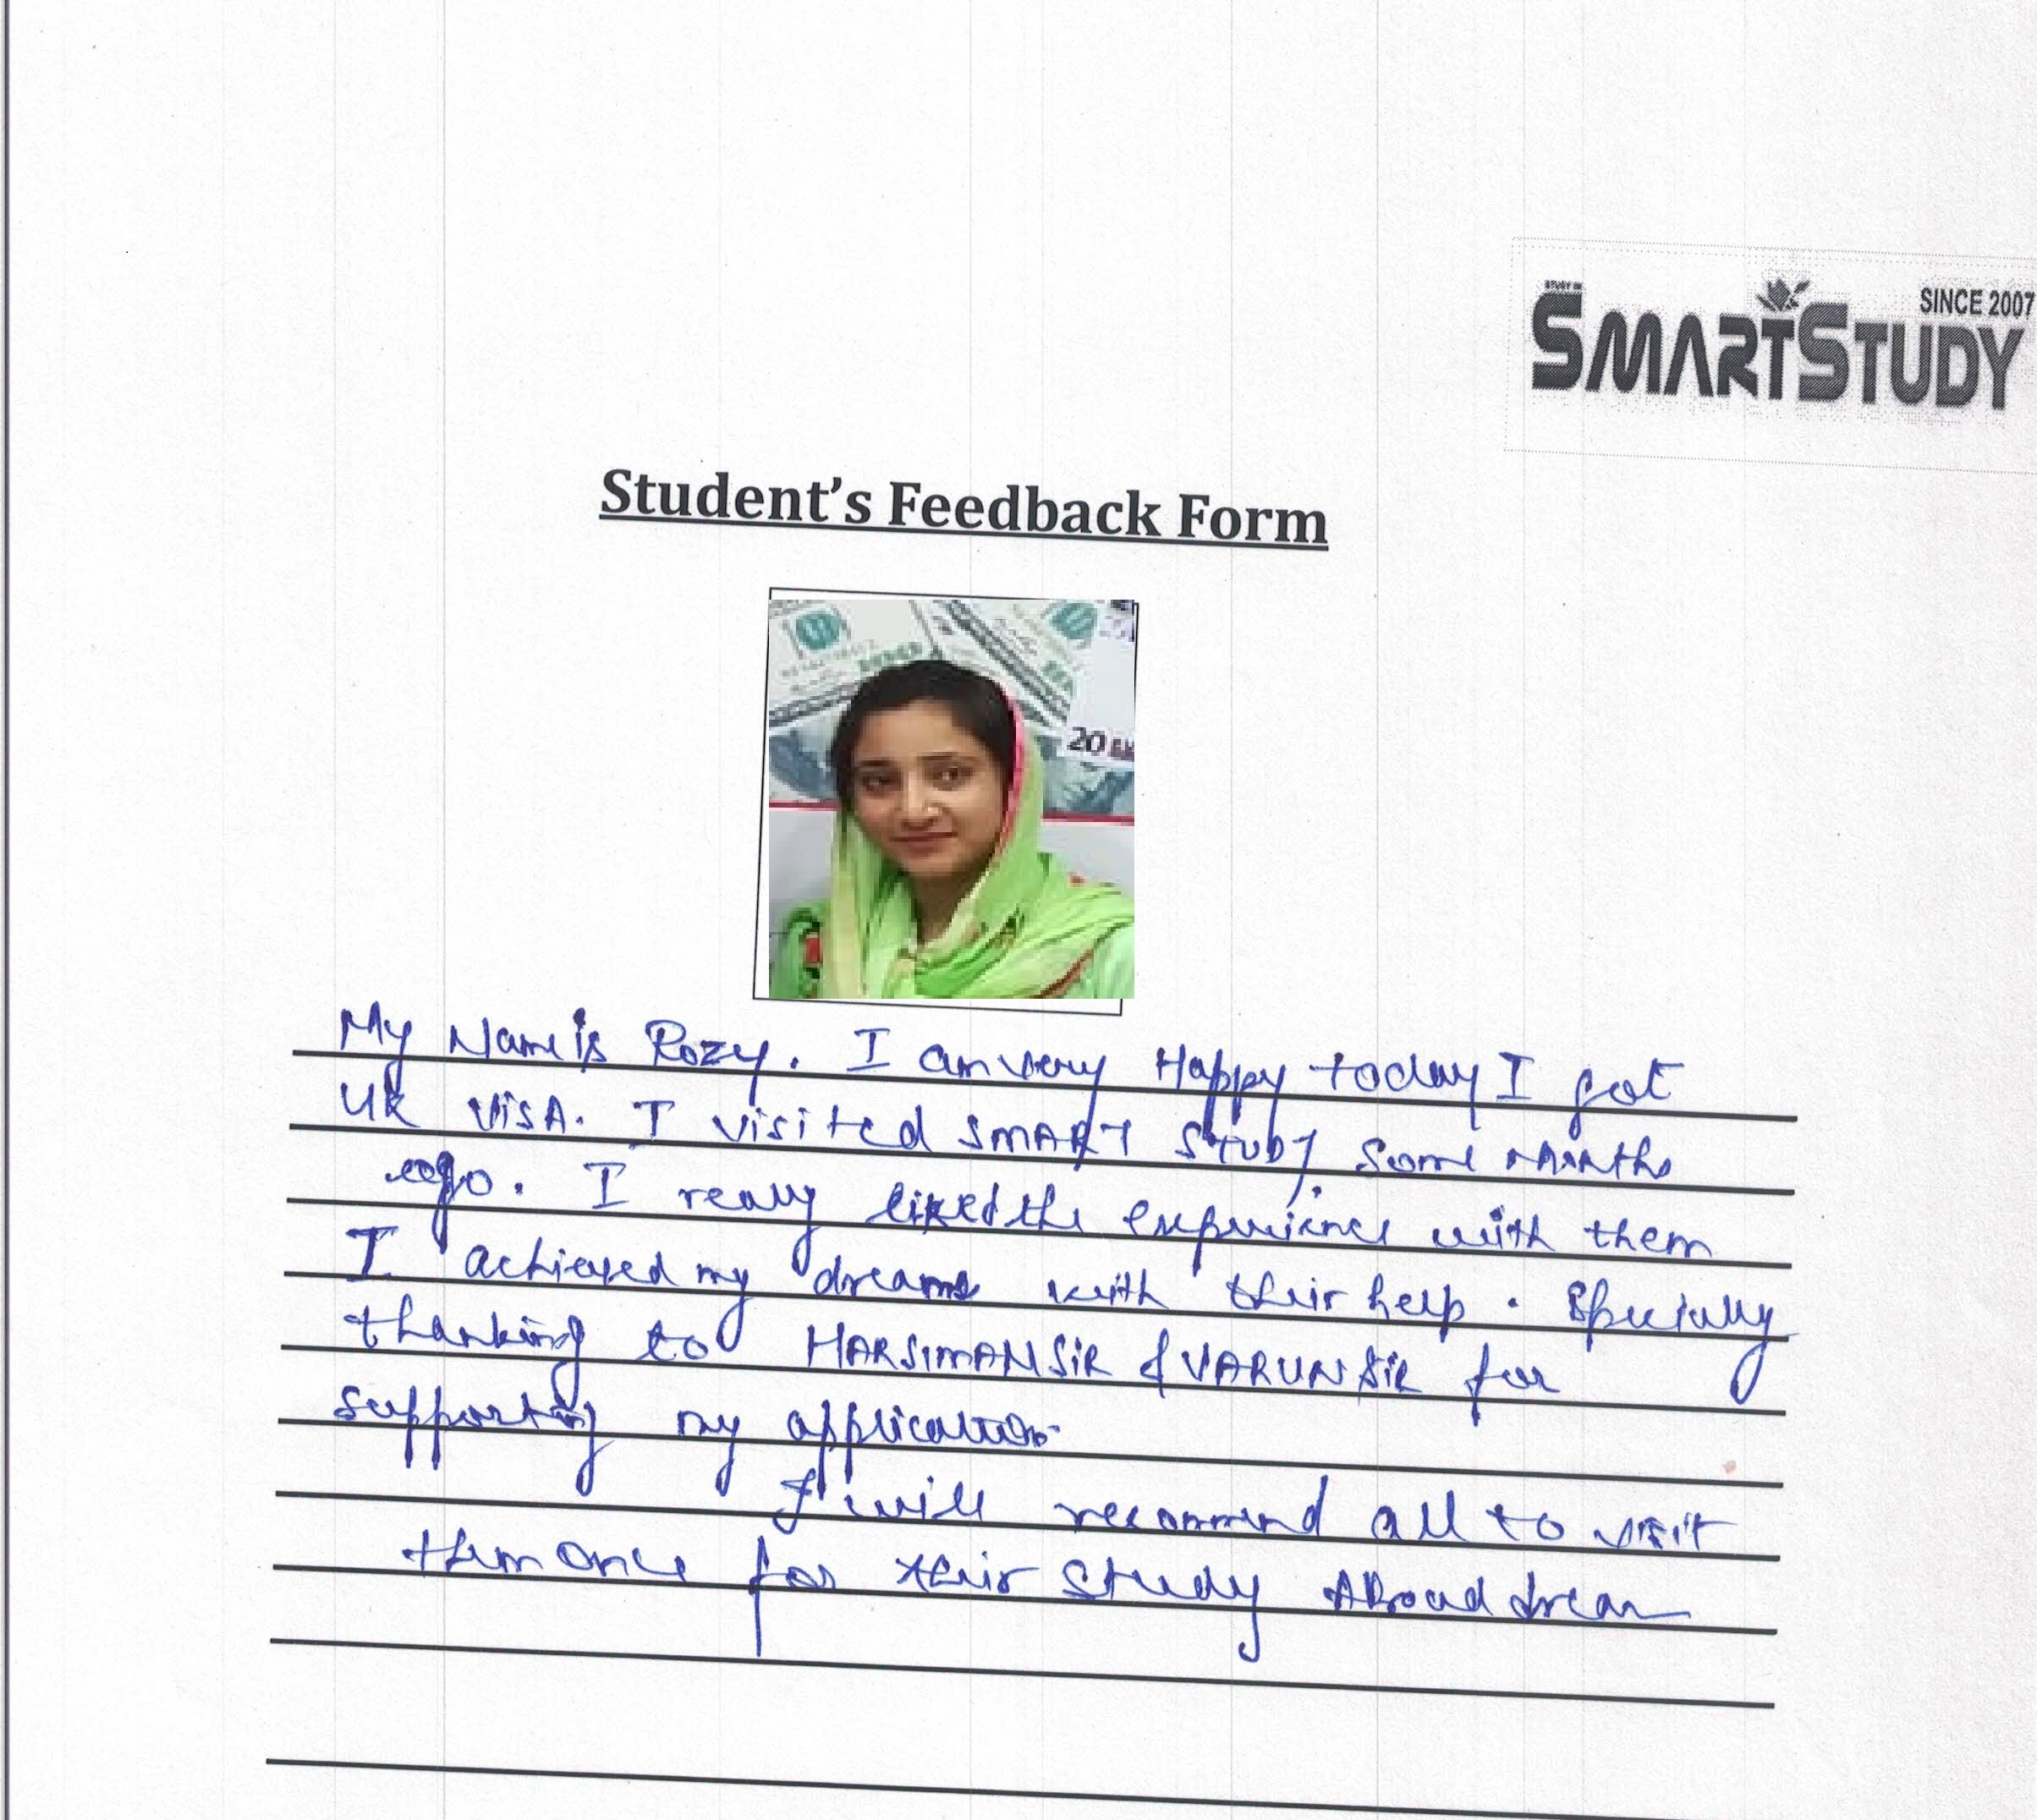 STUDY IN
SINCE 2007
SMARTSTUDY
Student's Feedback Form
20
My Name is Rozy. I am very Happy today I got
UK VISA. I visited SMART STUDY some months
ago. I really liked the experience with them
I achieved my dreams with their help. Specially
thanking to HARSIMAN SIR & VARUN SIR for
supporting my application.
I will recommend all to visit
them once for their study Abroad dream